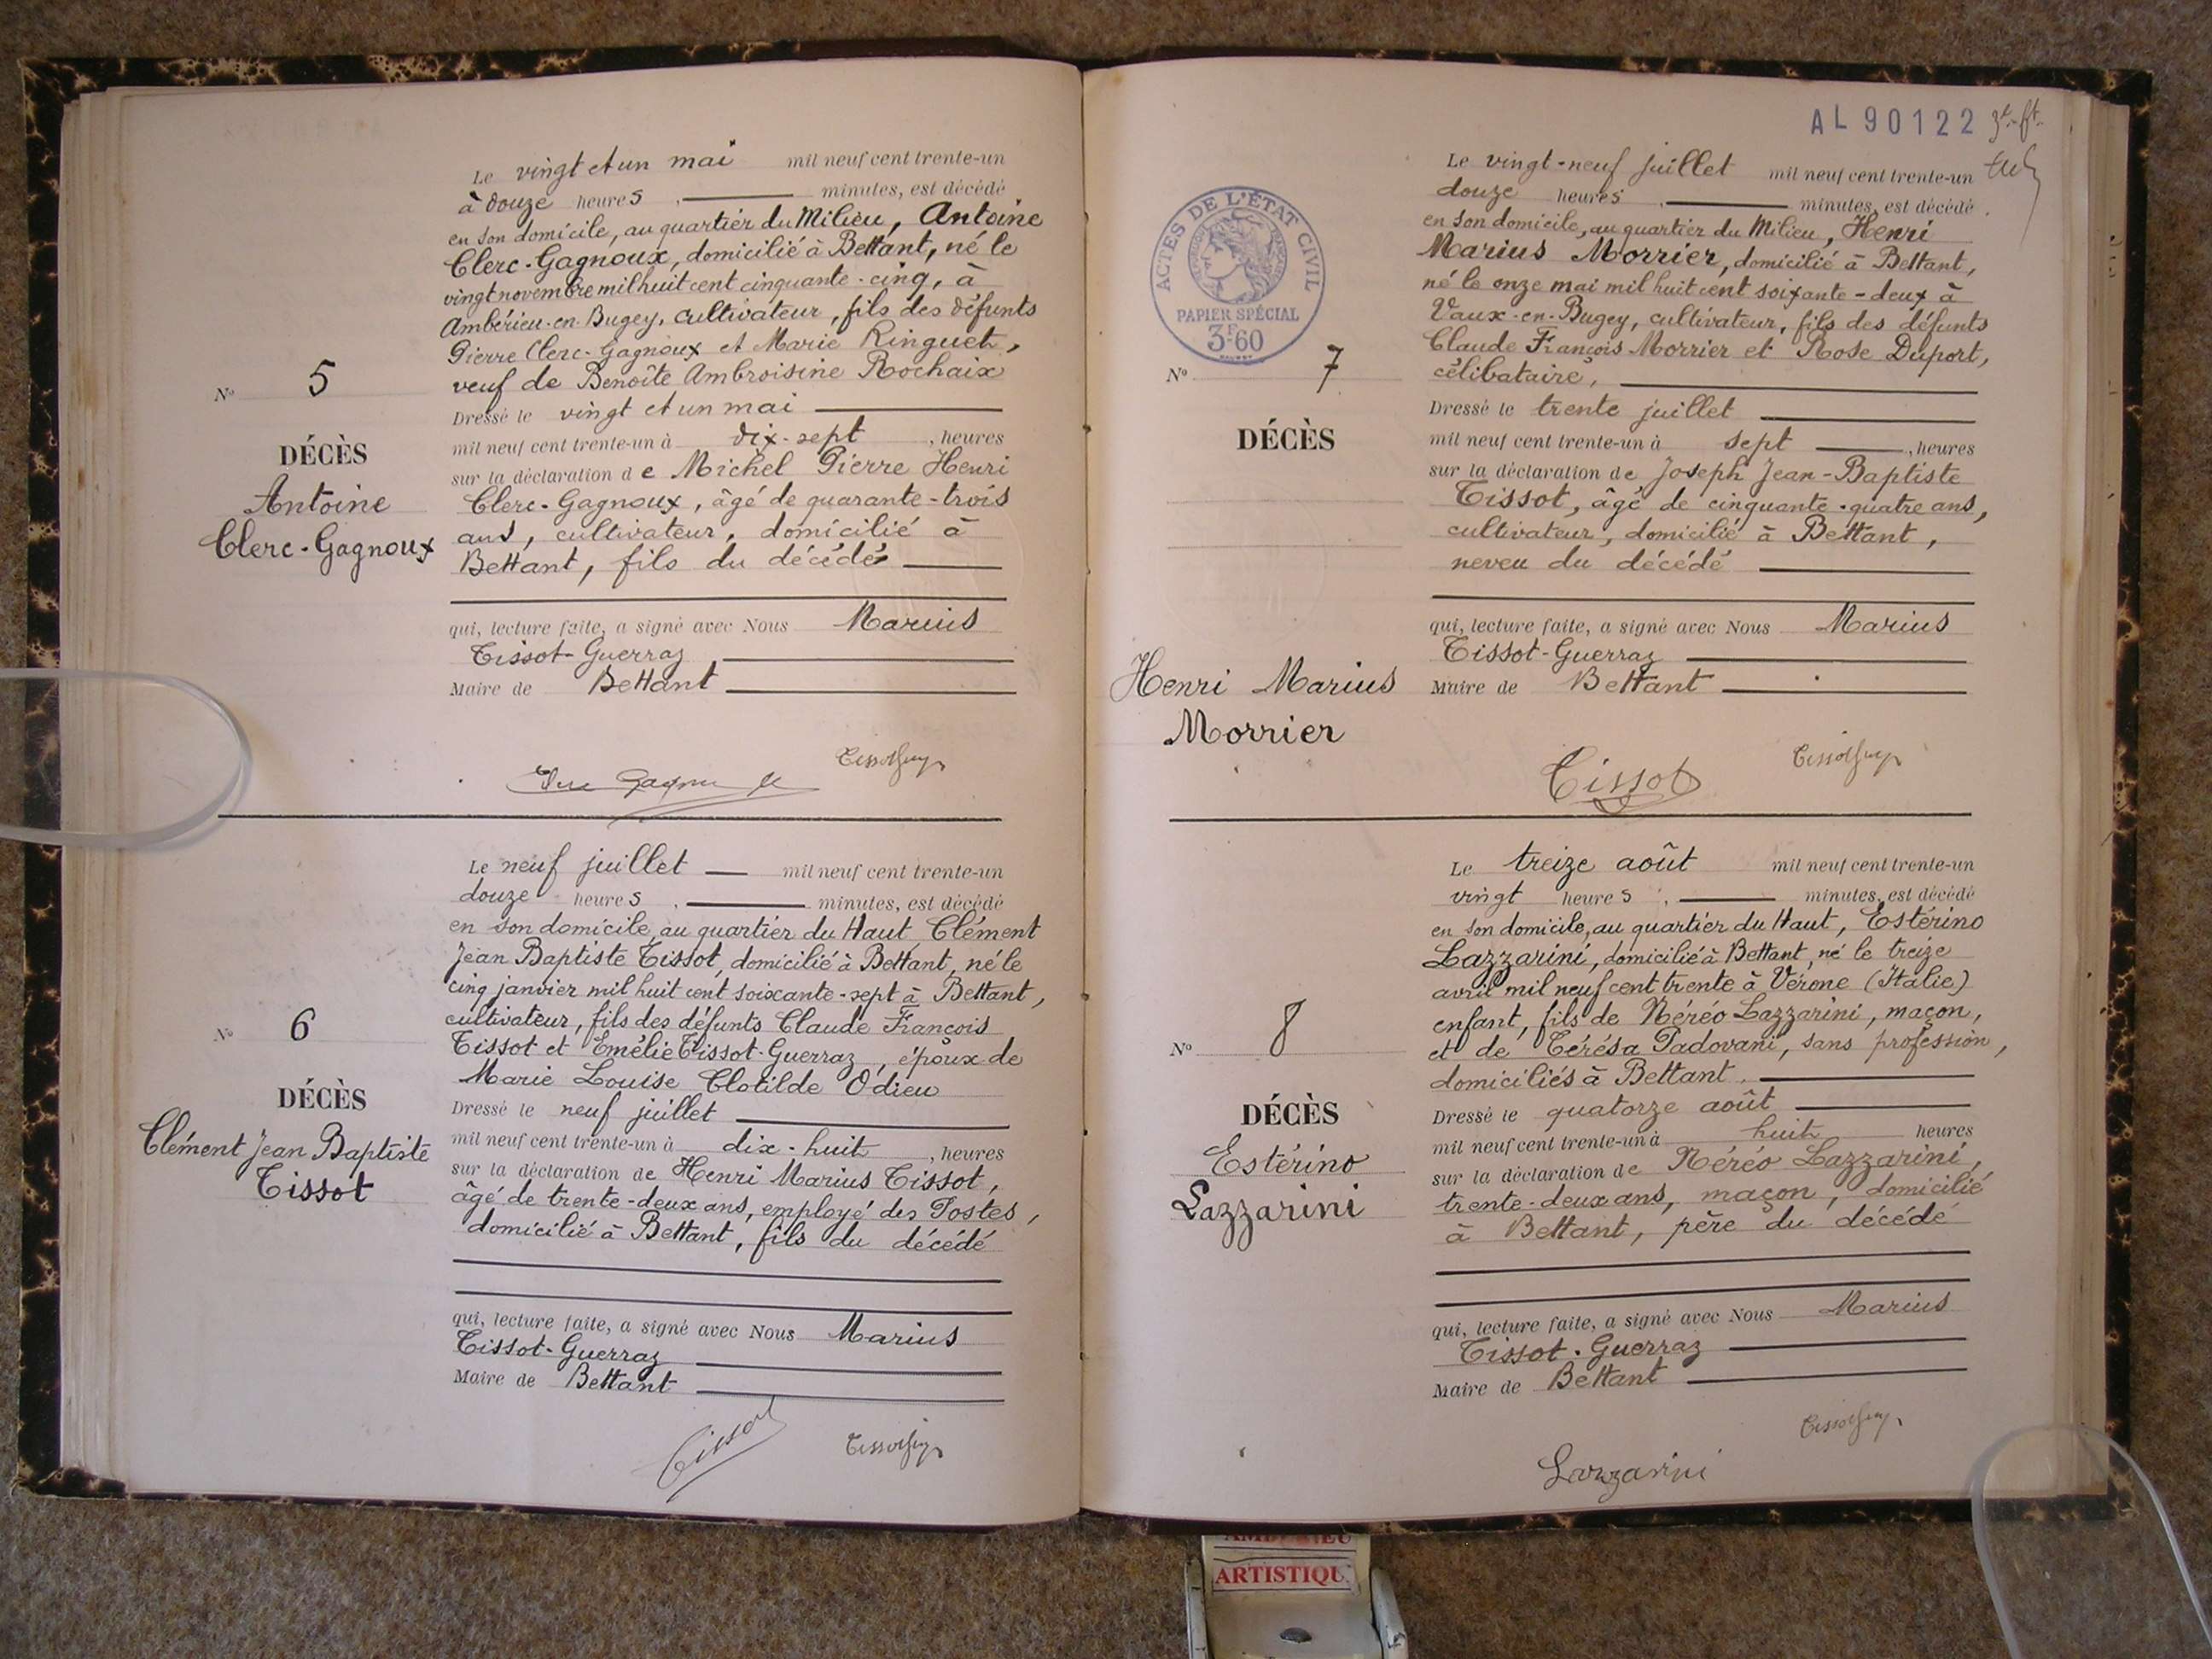 Le vingt et un mai mil neuf cent trente-un
à douze heures, minutes, est décédé
en son domicile, au quartier du Milieu, Antoine
Clerc-Gagnoux, domicilié à Bettant, né le
vingt novembre mil huit cent cinquante-cinq, à
Ambérieu-en-Bugey, cultivateur, fils des défunts
Pierre Clerc-Gagnoux et Marie Ringuet,
veuf de Benoîte Ambroisine Rochaix
Dressé le vingt et un mai
mil neuf cent trente-un à dix-sept, heures
sur la déclaration de Michel Pierre Henri
Clerc-Gagnoux, âgé de quarante-trois
ans, cultivateur, domicilié à
Bettant, fils du décédé
qui, lecture faite, a signé avec Nous Marius
Tissot-Guerraz
Maire de Bettant
No 5
DÉCÈS
Antoine
Clerc-Gagnoux
Le neuf juillet mil neuf cent trente-un
douze heures, minutes, est décédé
en son domicile, au quartier du Haut, Clément
Jean Baptiste Tissot, domicilié à Bettant, né le
cinq janvier mil huit cent soixante-sept à Bettant,
cultivateur, fils des défunts Claude François
Tissot et Emélie Tissot-Guerraz, époux de
Marie Louise Clotilde Odieu
Dressé le neuf juillet
mil neuf cent trente-un à dix-huit, heures
sur la déclaration de Henri Marius Tissot,
âgé de trente-deux ans, employé des Postes,
domicilié à Bettant, fils du décédé
qui, lecture faite, a signé avec Nous Marius
Tissot-Guerraz
Maire de Bettant
Tissot
No 6
DÉCÈS
Clément Jean Baptiste
Tissot
AL 90122
ACTES DE L'ÉTAT CIVIL
PAPIER SPÉCIAL
3F60
Le vingt-neuf juillet mil neuf cent trente-un
douze heures, minutes, est décédé
en son domicile, au quartier du Milieu, Henri
Marius Morrier, domicilié à Bettant,
né le onze mai mil huit cent soixante-deux à
Vaux-en-Bugey, cultivateur, fils des défunts
Claude François Morrier et Rose Duport,
célibataire,
Dressé le trente juillet
mil neuf cent trente-un à sept, heures
sur la déclaration de Joseph Jean-Baptiste
Tissot, âgé de cinquante-quatre ans,
cultivateur, domicilié à Bettant,
neveu du décédé
qui, lecture faite, a signé avec Nous Marius
Tissot-Guerraz
Maire de Bettant
Tissot
No 7
DÉCÈS
Henri Marius
Morrier
Le treize août mil neuf cent trente-un
vingt heures, minutes, est décédé
en son domicile, au quartier du Haut, Estérino
Lazzarini, domicilié à Bettant, né le treize
avril mil neuf cent trente à Vérone (Italie)
enfant, fils de Néréo Lazzarini, maçon,
et de Térésa Padovani, sans profession,
domiciliés à Bettant.
Dressé le quatorze août
mil neuf cent trente-un à huit heures
sur la déclaration de Néréo Lazzarini,
trente-deux ans, maçon, domicilié
à Bettant, père du décédé
qui, lecture faite, a signé avec Nous Marius
Tissot-Guerraz
Maire de Bettant
Lazzarini
No 8
DÉCÈS
Estérino
Lazzarini
ARTISTIQU